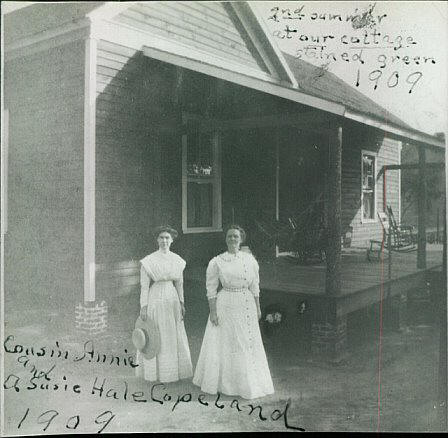 2nd summer
at our cottage
stained green
1909
Cousin Annie
and
A Susie Hale Copeland
1909